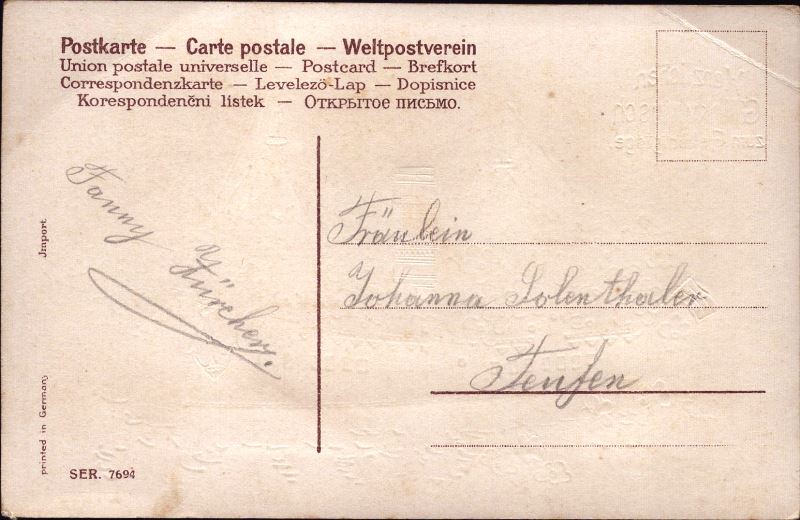 Postkarte — Carte postale — Weltpostverein
Union postale universelle — Postcard — Brefkort
Correspondenzkarte — Levelező-Lap — Dopisnice
Korespondenčni listek — Открытое письмо.
Fanny
Zürcher.
Fräulein
Johanna Solenthaler
Teufen
Import
printed in Germany
SER. 7694